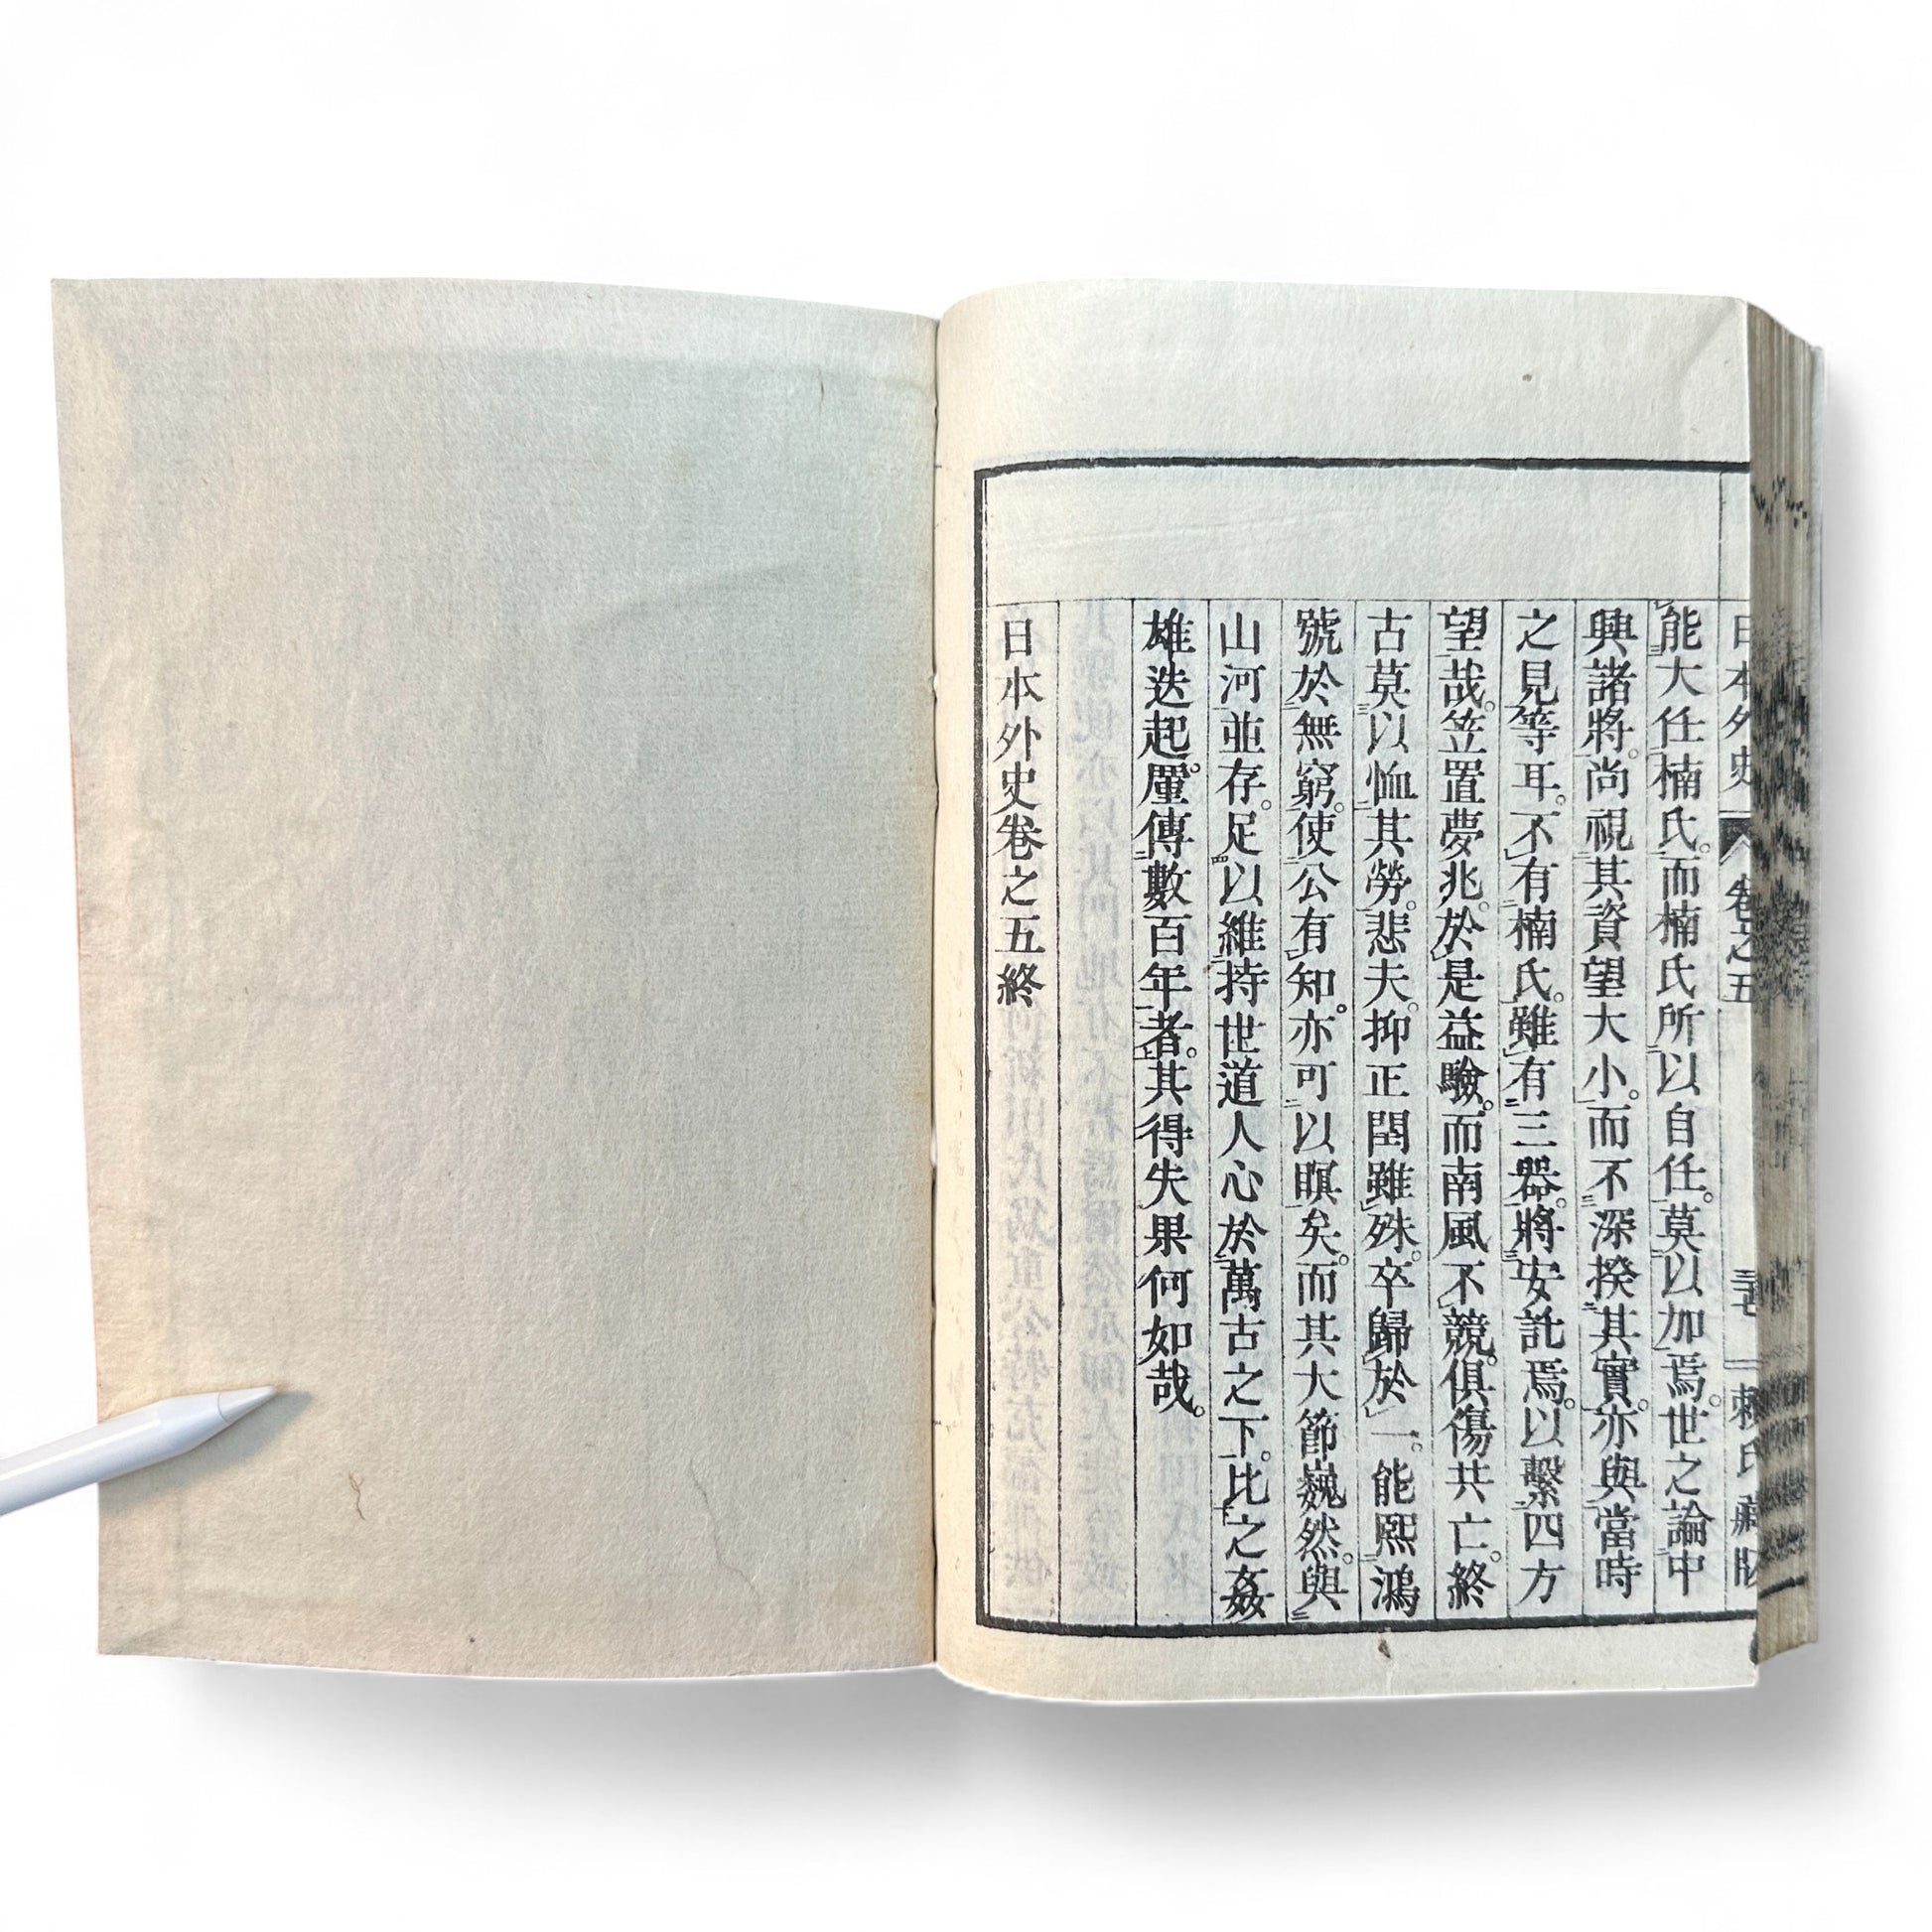 日本外史 卷之五 賴氏藏版
能大任楠氏。而楠氏所以自任。莫以加焉。世之論中
興諸將。尚視其資望大小。而不深揆其實。亦與當時
之見等耳。不有楠氏。雖有三器。將安託焉。以繫四方
望哉。笠置夢兆。於是益驗。而南風不競。俱傷共亡。終
古莫以恤其勞。悲夫。抑正閏雖殊。卒歸於一。能熙鴻
號於無窮。使公有知。亦可以瞑矣。而其大節巍然。與
山河並存。足以維持世道人心於萬古之下。比之姦
雄迭起。廑傳數百年者。其得失果何如哉。
日本外史卷之五終